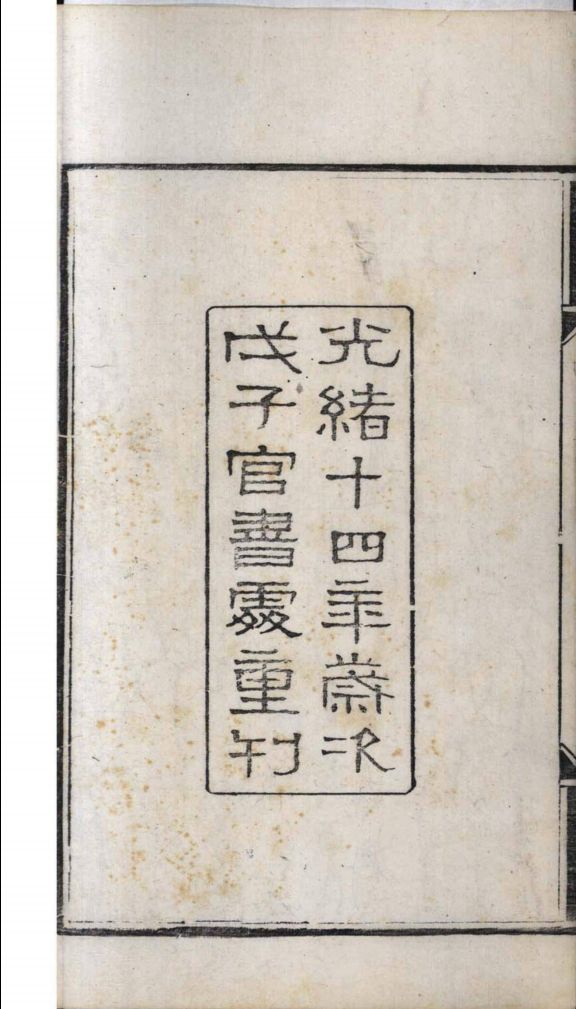 光緒十四年歲次
戊子官書處重刊